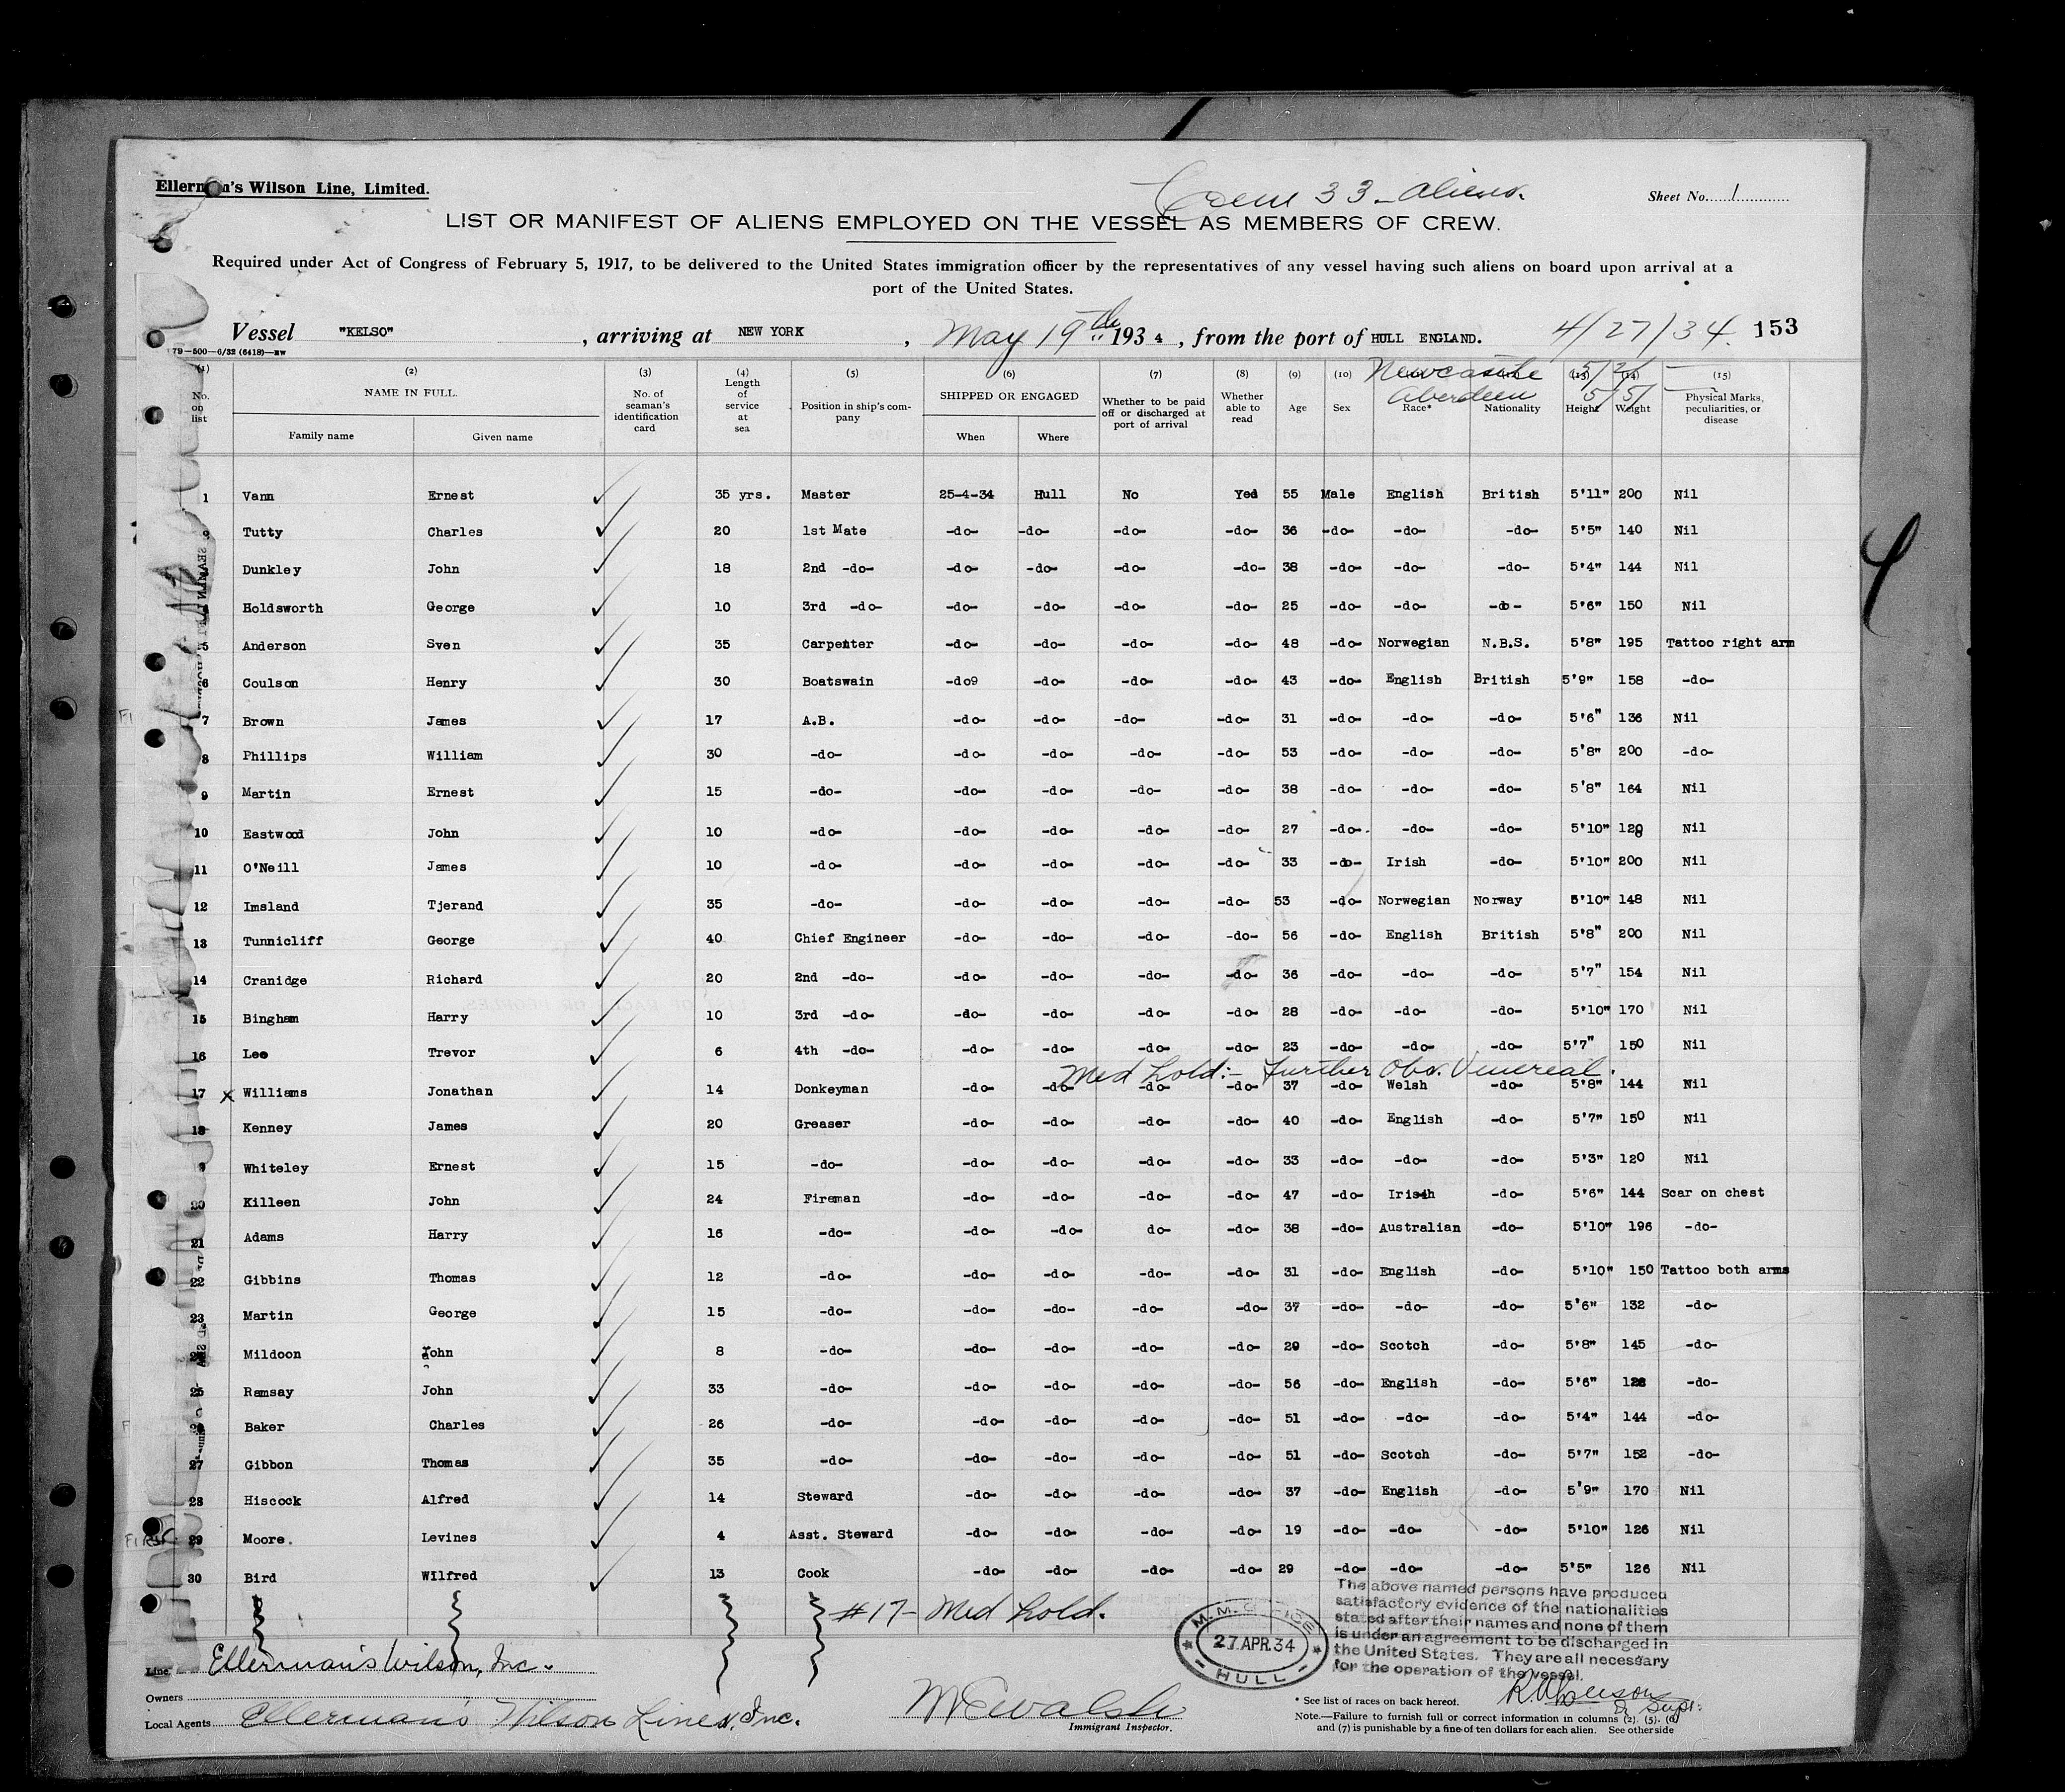 Ellerman's Wilson Line, Limited.
33 - Aliens.
Sheet No. 1
LIST OR MANIFEST OF ALIENS EMPLOYED ON THE VESSEL AS MEMBERS OF CREW.
Required under Act of Congress of February 5, 1917, to be delivered to the United States immigration officer by the representatives of any vessel having such aliens on board upon arrival at a
port of the United States.
Vessel "KELSO" , arriving at NEW YORK , May 19th 1934 , from the port of HULL ENGLAND. 4/27/34. 153
79-500-6/32 (6418)
Newcastle
Aberdeen 5/5/
(1) No. on list (2) NAME IN FULL. Family name Given name (3) No. of seaman's identification card (4) Length of service at sea (5) Position in ship's company (6) SHIPPED OR ENGAGED When Where (7) Whether to be paid off or discharged at port of arrival (8) Whether able to read (9) Age (10) Sex Race* Nationality (13) Height (14) Weight (15) Physical Marks, peculiarities, or disease
1 Vann Ernest ✓ 35 yrs. Master 25-4-34 Hull No Yed 55 Male English British 5'11" 200 Nil
Tutty Charles ✓ 20 1st Mate -do- -do- -do- -do- 36 -do- -do- -do- 5'5" 140 Nil
Dunkley John ✓ 18 2nd -do- -do- -do- -do- -do- 38 -do- -do- -do- 5'4" 144 Nil
Holdsworth George ✓ 10 3rd -do- -do- -do- -do- -do- 25 -do- -do- -do- 5'6" 150 Nil
5 Anderson Sven ✓ 35 Carpenter -do- -do- -do- -do- 48 -do- Norwegian N.B.S. 5'8" 195 Tattoo right arm
6 Coulson Henry ✓ 30 Boatswain -do9 -do- -do- -do- 43 -do- English British 5'9" 158 -do-
7 Brown James ✓ 17 A.B. -do- -do- -do- -do- 31 -do- -do- -do- 5'6" 136 Nil
8 Phillips William ✓ 30 -do- -do- -do- -do- -do- 53 -do- -do- -do- 5'8" 200 -do-
9 Martin Ernest ✓ 15 -do- -do- -do- -do- -do- 38 -do- -do- -do- 5'8" 164 Nil
10 Eastwood John ✓ 10 -do- -do- -do- -do- -do- 27 -do-. -do- -do- 5'10" Nil
11 O'Neill James ✓ 10 -do- -do- -do- -do- -do- 33 -do- Irish -do- 5'10" 200 Nil
12 Imsland Tjerand ✓ 35 -do- -do- -do- -do- -do- 53 -do- Norwegian Norway 5'10" 148 Nil
13 Tunnicliff George ✓ 40 Chief Engineer -do- -do- -do- -do- 56 -do- English British 5'8" 200 Nil
14 Cranidge Richard ✓ 20 2nd -do- -do- -do- -do- -do- 36 -do- -do- -do- 5'7" 154 Nil
15 Bingham Harry ✓ 10 3rd -do- -do- -do- -do- -do- 28 -do- -do- -do- 5'10" 170 Nil
16 Lee Trevor ✓ 6 4th -do- -do- -do- -do- -do- 23 -do- -do- -do- 5'7" 150 Nil
Med hold:- Further Obs. Venereal.
17 x Williams Jonathan ✓ 14 Donkeyman -do- -do- -do- -do- 37 -do- Welsh -do- 5'8" 144 Nil
18 Kenney James ✓ 20 Greaser -do- -do- -do- -do- 40 -do- English -do- 5'7" 150 Nil
9 Whiteley Ernest ✓ 15 -do- -do- -do- -do- -do- 33 -do- -do- -do- 5'3" 120 Nil
20 Killeen John ✓ 24 Fireman -do- -do- -do- -do- 47 -do- Irish -do- 5'6" 144 Scar on chest
21 Adams Harry ✓ 16 -do- -do- -do- do- -do- 38 -do- Australian -do- 5'10" 196 -do-
22 Gibbins Thomas ✓ 12 -do- -do- -do- -do- -do- 31 -do- English -do- 5'10" 150 Tattoo both arms
23 Martin George ✓ 15 -do- -do- -do- -do- -do- 37 -do- -do- -do- 5'6" 132 -do-
Mildoon John ✓ 8 -do- -do- -do- -do- -do- 29 -do- Scotch -do- 5'8" 145 -do-
25 Ramsay John ✓ 33 -do- -do- -do- -do- -do- 56 -do- English -do- 5'6" -do-
Baker Charles ✓ 26 -do- -do- -do- -do- -do- 51 -do- -do- -do- 5'4" 144 -do-
27 Gibbon Thomas ✓ 35 -do- -do- -do- -do- -do- 51 -do- Scotch -do- 5'7" 152 -do-
28 Hiscock Alfred ✓ 14 Steward -do- -do- -do- -do- 37 -do- English -do- 5'9" 170 Nil
29 Moore. Levines ✓ 4 Asst. Steward -do- -do- -do- -do- 19 -do- -do- -do- 5'10" 126 Nil
30 Bird Wilfred ✓ 13 Cook -do- -do- -do- -do- 29 -do- -do- -do- 5'5" 126 Nil
#17- Med hold.
M.M. OFFICE
27 APR. 34
HULL
The above named persons have produced
satisfactory evidence of the nationalities
stated after their names and none of them
is under an agreement to be discharged in
the United States. They are all necessary
for the operation of the vessel.
Line Ellerman's Wilson, Inc.
Owners
Local Agents Ellerman's Wilson Line, Inc.
M E Walsh
Immigrant Inspector.
* See list of races on back hereof.
Note.—Failure to furnish full or correct information in columns (2), (5), (6)
and (7) is punishable by a fine of ten dollars for each alien. See other side